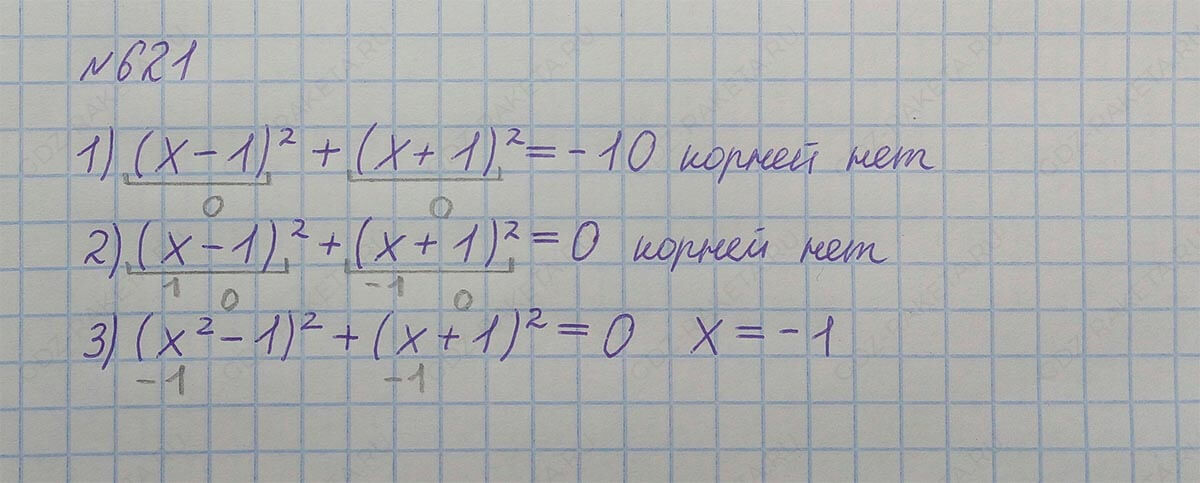 №621
1) (x-1)² + (x+1)² = -10 корней нет
0 0
2) (x-1)² + (x+1)² = 0 корней нет
1 0 -1 0
3) (x²-1)² + (x+1)² = 0 x = -1
-1 -1